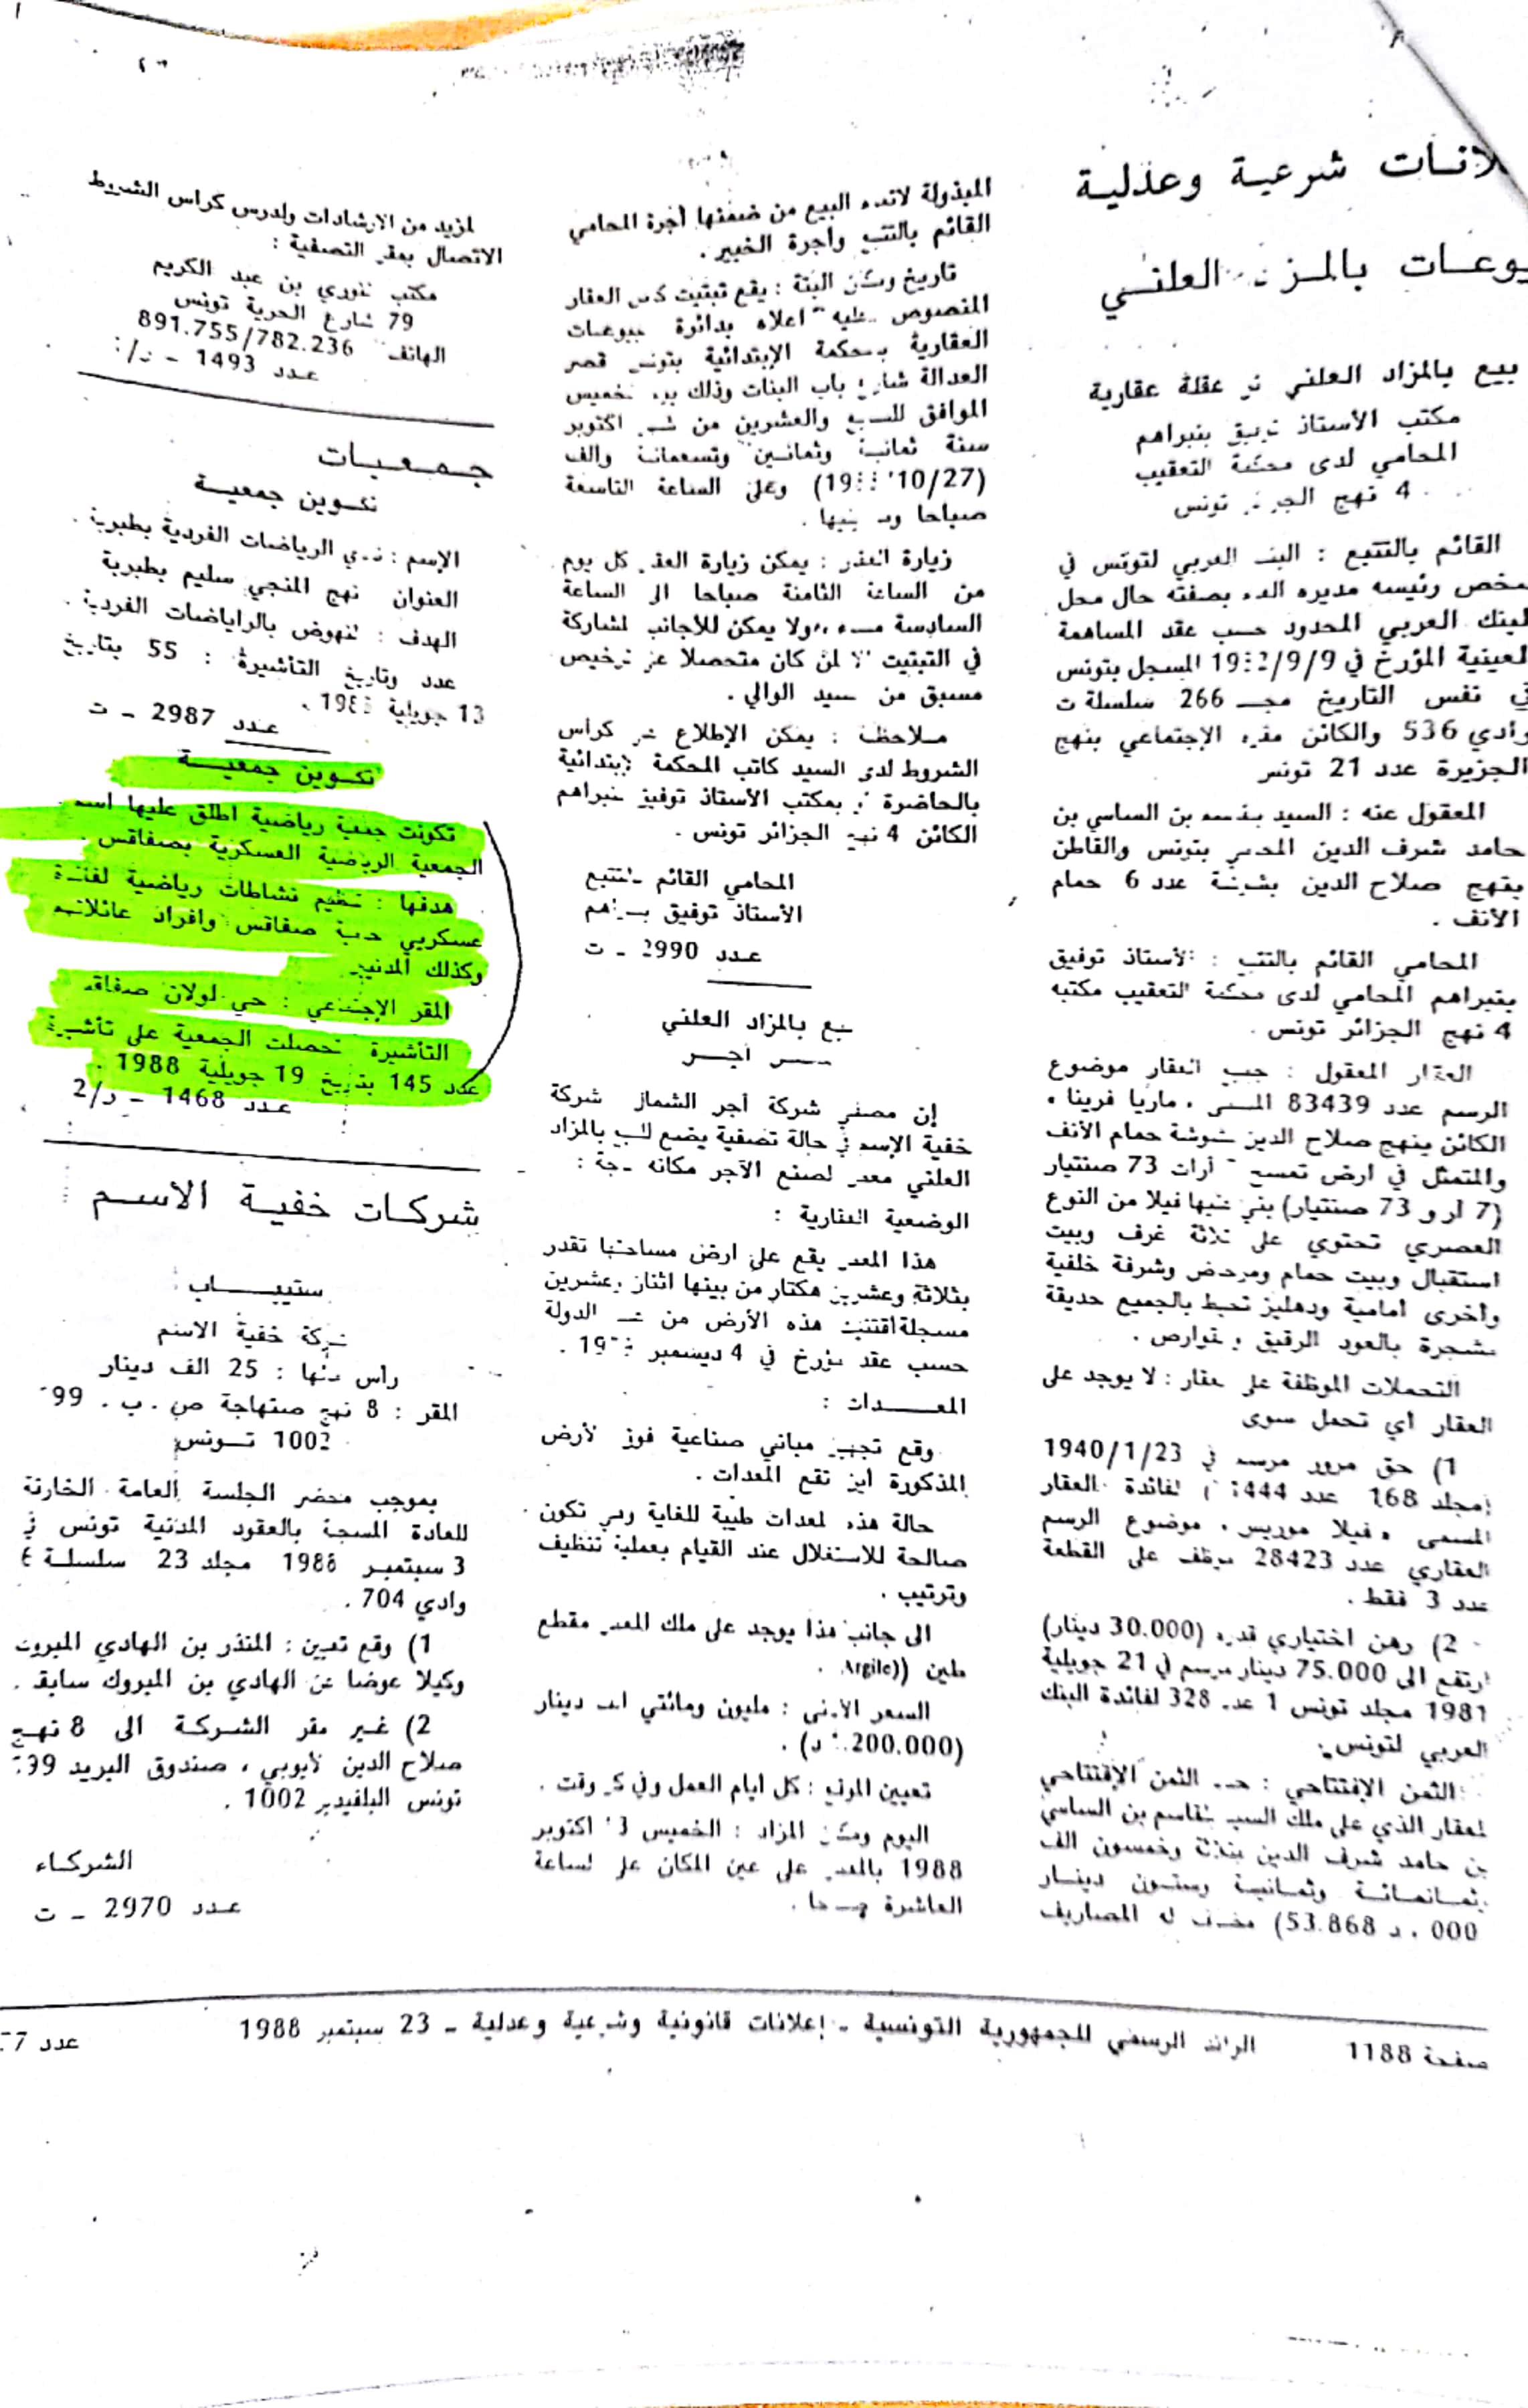 شرعية وعدلية
العلني
بيع بالمزاد العلني عقلة عقارية
مكتب الأستاذ توفيق بنبراهم
المحامي لدى محكمة التعقيب
4 نهج تونس
القائم بالتتبع : البنك العربي لتونس في
رئيسه مديره بصفته حال محل
البنك العربي المحدود حسب عقد المساهمة
العينية المؤرخ في المسجل بتونس
في نفس التاريخ 266 سلسلة ت
وادي 536 والكائن مقره الإجتماعي بنهج
الجزيرة عدد 21 تونس
المعقول عنه : السيد بن الساسي بن
حامد شرف الدين بتونس والقاطن
بنهج صلاح الدين عدد 6 حمام
الأنف .
المحامي القائم بالتتبع : الأستاذ توفيق
بنبراهم المحامي لدى محكمة التعقيب مكتبه
4 نهج الجزائر تونس .
العقار المعقول : جميع العقار موضوع
الرسم عدد 83439 المسمى ، ماريا فرينا ،
الكائن بنهج صلاح الدين حمام الأنف
والمتمثل في ارض تمسح آرات 73 صنتيار
(7 أر و 73 صنتيار) بني عليها فيلا من النوع
العصري تحتوي على ثلاثة غرف وبيت
استقبال وبيت حمام ومرحض وشرفة خلفية
وأخرى أمامية ودهليز تحيط بالجميع حديقة
مشجرة بالعود الرقيق والقوارص .
التحملات الموظفة على العقار : لا يوجد على
العقار أي تحمل سوى
1) حق مرور مرسم في 1940/1/23
مجلد 168 عدد لفائدة العقار
المسمى « فيلا موريس » موضوع الرسم
العقاري عدد 28423 موظف على القطعة
عدد 3 فقط .
2) رهن اختياري قدره (30.000 دينار)
ارتفع الى 75.000 دينار مرسم في 21 جويلية
1981 مجلد تونس 1 عدد 328 لفائدة البنك
العربي لتونس .
الثمن الإفتتاحي : حدد الثمن الإفتتاحي
للعقار الذي على ملك السيد بلقاسم بن الساسي
بن حامد شرف الدين بثلاثة وخمسون الف
وثمانمائة وثمانية وستون دينار
(53.868 د . 000 مضاف له المصاريف
المبذولة البيع من ضمنها أجرة المحامي
القائم بالتتبع وأجرة الخبير .
تاريخ ومكان البتة : يقع تبتيت كامل العقار
المنصوص عليه اعلاه بدائرة البيوعات
العقارية بالمحكمة الإبتدائية بتونس قصر
العدالة شارع باب البنات وذلك يوم الخميس
الموافق للسابع والعشرين من شهر اكتوبر
سنة ثمانية وثمانين وتسعمائة والف
وعلى الساعة التاسعة
صباحا وما يليها .
زيارة العقار : يمكن زيارة العقار كل يوم
من الساعة الثامنة صباحا الى الساعة
السادسة مساء ولا يمكن للأجانب المشاركة
في التبتيت الا لمن كان متحصلا على ترخيص
مسبق من سيد الوالي .
ملاحظة : يمكن الإطلاع على كراس
الشروط لدى السيد كاتب المحكمة الإبتدائية
بالحاضرة أو بمكتب الأستاذ توفيق بنبراهم
الكائن 4 نهج الجزائر تونس .
المحامي القائم بالتتبع
الأستاذ توفيق بنبراهم
عدد 2990 ـ ت
بيع بالمزاد العلني
آجر
إن مصفي شركة أجر الشمال شركة
خفية الإسم في حالة تصفية يضع للبيع بالمزاد
العلني معمل لصنع الآجر مكانه :
الوضعية العقارية :
هذا المعمل يقع على ارض مساحتها تقدر
بثلاثة وعشرين هكتار من بينها اثنان وعشرين
مسجلة أقتنيت هذه الأرض من الدولة
حسب عقد مؤرخ في 4 ديسمبر
المعدات :
وقع تجهيز مباني صناعية فوق الأرض
المذكورة أين تقع المعدات .
حالة هذه المعدات طيبة للغاية وهي تكون
صالحة للاستغلال عند القيام بعملية تنظيف
وترتيب .
الى جانب هذا يوجد على ملك المعمل مقطع
طين ((Argile .
السعر الأدنى : مليون ومائتي الف دينار
(1.200.000 د) .
تعيين الموقع : كل أيام العمل وفي كل وقت .
اليوم ومكان المزاد : الخميس اكتوبر
1988 بالمعمل على عين المكان على الساعة
العاشرة صباحا .
لمزيد من الإرشادات ولدرس كراس الشروط
الاتصال بمقر التصفية :
مكتب نوري بن عبد الكريم
79 شارع الحرية تونس
الهاتف 891.755/782.236
عدد 1493 ـ
جمعيات
تكوين جمعية
الإسم : نادي الرياضات الفردية بطبربة .
العنوان نهج المنجي سليم بطبربة
الهدف : النهوض بالرياضات الفردية .
عدد وتاريخ التأشيرة : 55 بتاريخ
13 جويلية
عدد 2987 ـ ت
تكوين جمعية
تكونت جمعية رياضية اطلق عليها اسم
الجمعية الرياضية العسكرية بصفاقس .
هدفها : تنظيم نشاطات رياضية لفائدة
عسكريي صفاقس وافراد عائلاتهم
وكذلك المدنيين
المقر الإجتماعي : حي لولان صفاقس
التأشيرة تحصلت الجمعية على تأشيرة
عدد 145 بتاريخ 19 جويلية 1988 .
عدد 1468 ـ ر/2
شركات خفية الاسم
ستيباب
شركة خفية الاسم
رأس مالها : 25 الف دينار
المقر : 8 نهج صنهاجة ص . ب . 99
1002 تونس
بموجب محضر الجلسة العامة الخارقة
للعادة المسجلة بالعقود المدنية تونس في
3 سبتمبر 1988 مجلد 23 سلسلة
وادي 704 .
1) وقع تعيين : المنذر بن الهادي المبروك
وكيلا عوضا عن الهادي بن المبروك سابقا .
2) غير مقر الشركة الى 8 نهج
صلاح الدين الأيوبي ، صندوق البريد
تونس البلفيدير 1002 .
الشركاء
عدد 2970 ـ ت
صفحة 1188
الرائد الرسمي للجمهورية التونسية ـ إعلانات قانونية وشرعية وعدلية ـ 23 سبتمبر 1988
عدد